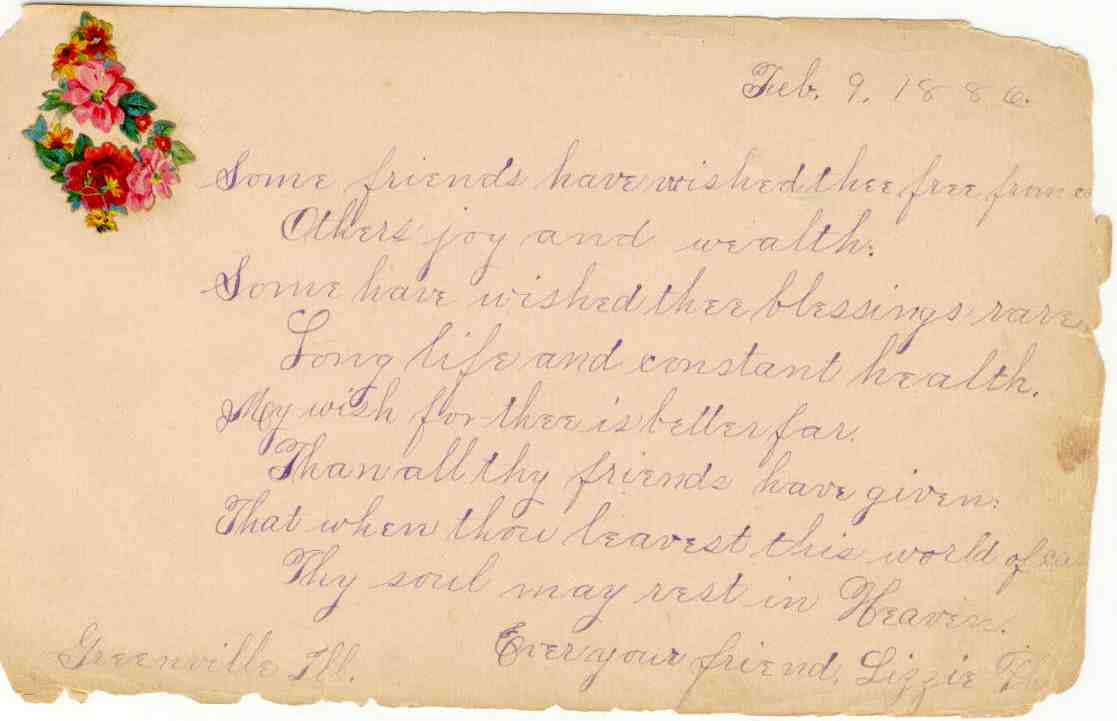 Feb. 9. 1886.
Some friends have wished thee free from
Others joy and wealth:
Some have wished thee blessings rare
Long life and constant health.
My wish for thee is better far.
Than all thy friends have given:
That when thou leavest this world of
Thy soul may rest in Heaven.
Ever your friend, Lizzie
Greenville Ill.